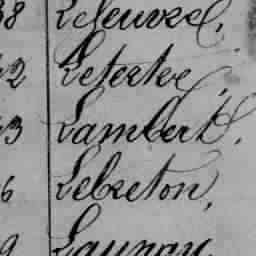 38 Lefeuvre,
42 Letertre,
43 Lambert,
6 Lebreton,
9 Launay